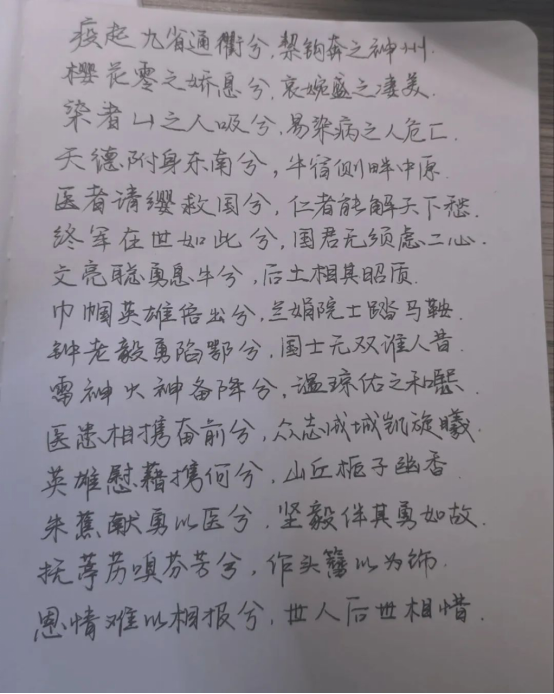 疫起九省通衢兮，挈钩奔之神州.
樱花零之娇息兮，哀婉盛之凄美.
染者山之人吸兮，易染病之人危亡.
天德附身东南兮，牛宿侧畔中原.
医者请缨救国兮，仁者能解天下愁.
终军在世如此兮，国君无须虑二心.
文亮聪勇息牛兮，后土相其昭质.
巾帼英雄倍出兮，兰娟院士踏马鞍.
钟老毅勇陷鄂兮，国士无双谁人昔.
雷神火神备降兮，温琼佑之和熙.
医患相携奋前兮，众志成城凯旋曦.
英雄慰藉携何兮，山丘栀子幽香.
朱蕉献勇以医兮，坚毅伴其勇如故.
抚荨苈嗅芬芳兮，作头簪以为饰.
恩情难以相报兮，世人后世相惜.